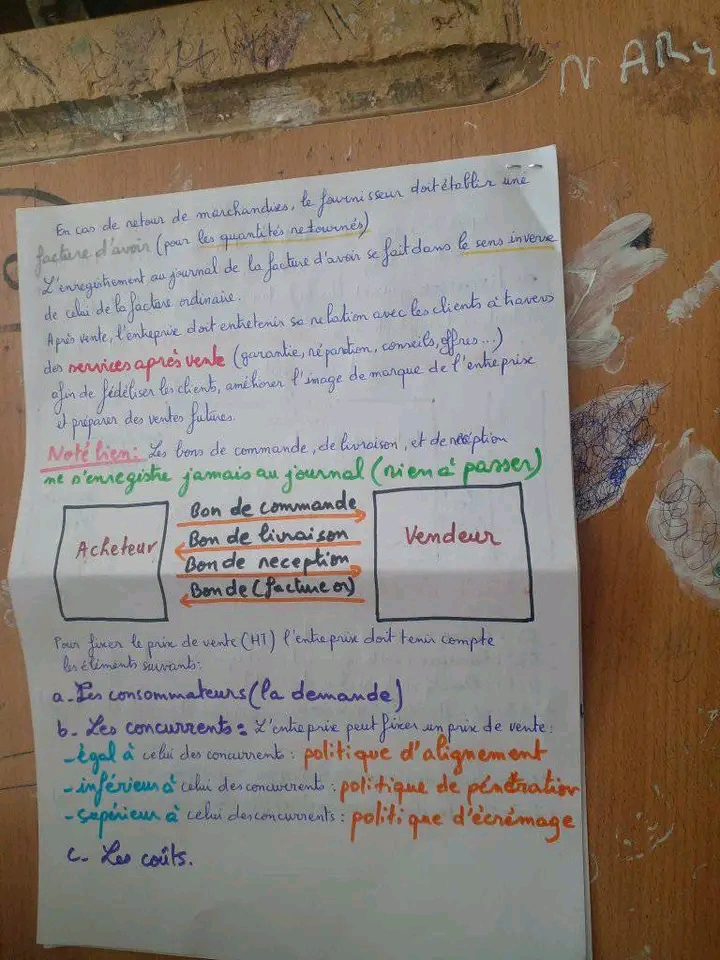 NARY
En cas de retour de marchandises, le fournisseur doit établir une
facture d'avoir (pour les quantités retournés)
L'enregistrement au journal de la facture d'avoir se fait dans le sens inverse
de celui de la facture ordinaire.
Après vente, l'entreprise doit entretenir sa relation avec les clients à travers
des services après vente (garantie, réparation, conseils, offres...)
afin de fédéliser les clients, améliorer l'image de marque de l'entreprise
et préparer des ventes futures.
Noté bien: Les bons de commande, de livraison, et de réception
ne s'enregistre jamais au journal (rien à passer)
Bon de commande
Acheteur
Bon de livraison
Vendeur
Bon de reception
Bon de (facture or)
Pour fixer le prix de vente (HT) l'entreprise doit tenir compte
les éléments suivants:
a. Les consommateurs (la demande)
b. Les concurrents: L'entreprise peut fixer un prix de vente:
-égal à celui des concurrent: politique d'alignement
-inférieur à celui des concurrents: politique de pénétration
-supérieur à celui des concurrents: politique d'écrémage
c. Les coûts.